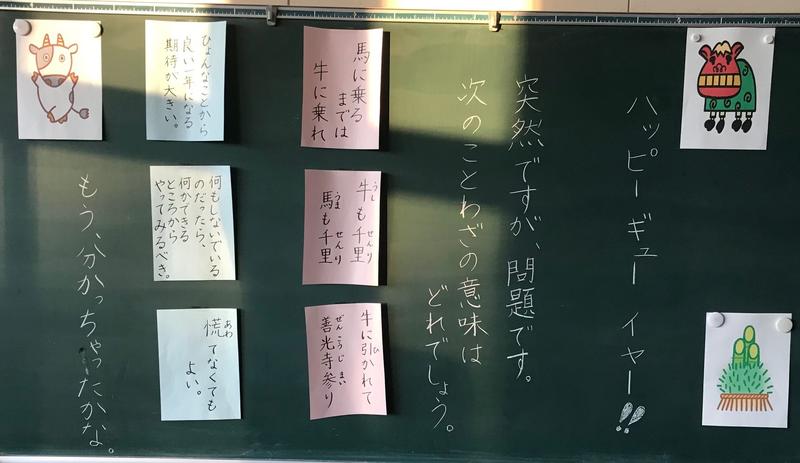 ハッピーギューイヤー!!
突然ですが、問題です。
次のことわざの意味は
どれでしょう。
馬に乗る
までは
牛に乗れ
牛も千里
うし せんり
馬も千里
うま せんり
牛に引かれて
ひ
善光寺参り
ぜんこうじ まい
ひょんなことから
良い一年になる
期待が大きい。
何もしないでいる
のだったら、
何かできる
ところから
やってみるべき。
慌てなくても
あわ
よい。
もう、分かっちゃったかな。